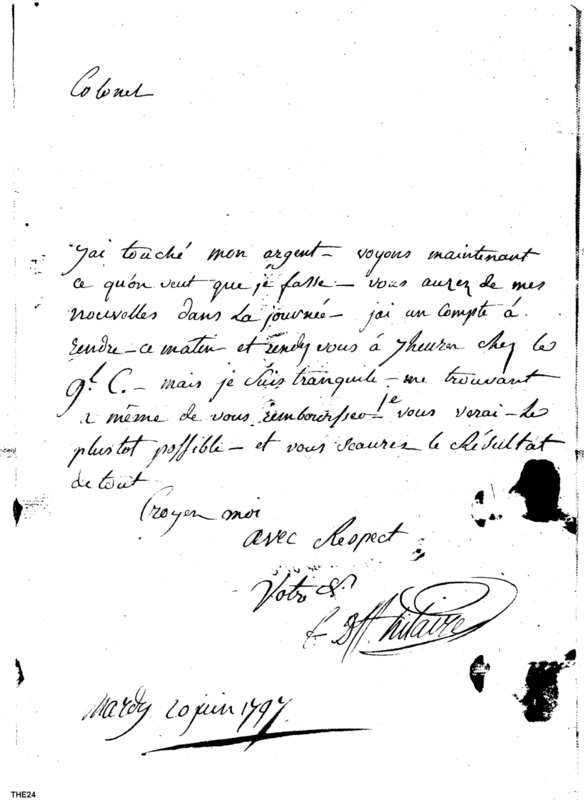 Colonel
J'ai touché mon argent – voyons maintenant
ce qu'on veut que je fasse – vous aurez de mes
nouvelles dans La journée – jai un Compte á
rendre – ce matin et rendez vous à 7 heures chez le
gl. C. – mais je suis tranquile – me trouvant
a même de vous rembourser – Je vous verai – le
plustot possible – et vous scaurez le Résultat
de tout
Croyez moi
avec Respect
Votre &.
hilaire
Mardy 20 juin 1797.
THE24